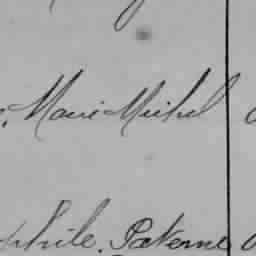 Marie Michel
phile. Paterne